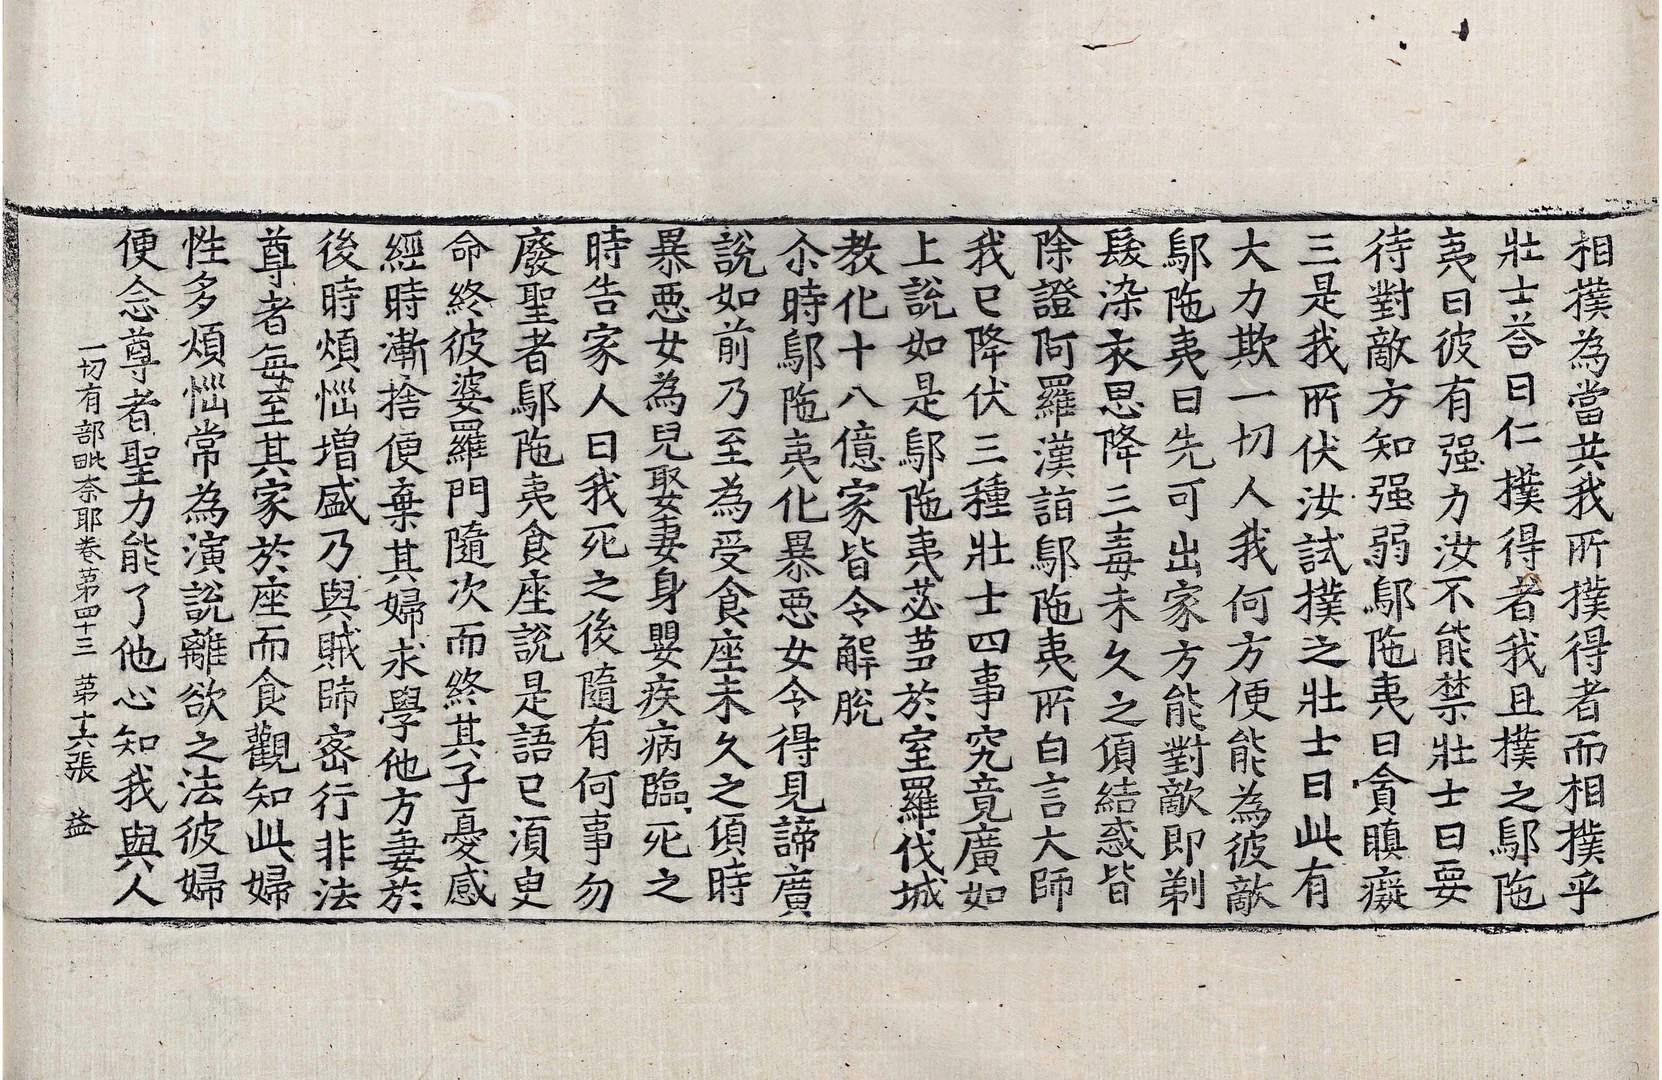 相撲為當共我所撲得者而相撲乎
壯士荅曰仁撲得者我且撲之鄔陁
夷曰彼有强力汝不能禁壯士曰要
待對敵方知强弱鄔陁夷曰貪瞋癡
三是我所伏汝試撲之壯士曰此有
大力欺一切人我何方便能為彼敵
鄔陁夷曰先可出家方能對敵即剃
髮染衣思降三毒未久之傾結惑皆
除證阿羅漢詣鄔陁夷所白言大師
我已降伏三種壯士四事究竟廣如
上說如是鄔陁夷苾芻於室羅伐城
教化十八億家皆令解脫
尒時鄔陁夷化暴惡女令得見諦廣
說如前乃至為受食座未久之傾時
暴惡女為兒娶妻身嬰疾病臨死之
時告家人曰我死之後隨有何事勿
廢聖者鄔陁夷食座說是語已須臾
命終彼婆羅門隨次而終其子憂感
經時漸捨便棄其婦求學他方妻於
後時煩惱增盛乃與賊師密行非法
尊者每至其家於座而食觀知此婦
性多煩惱常為演說離欲之法彼婦
便念尊者聖力能了他心知我與人
一切有部毗奈耶卷苐四十三　苐十六張　益